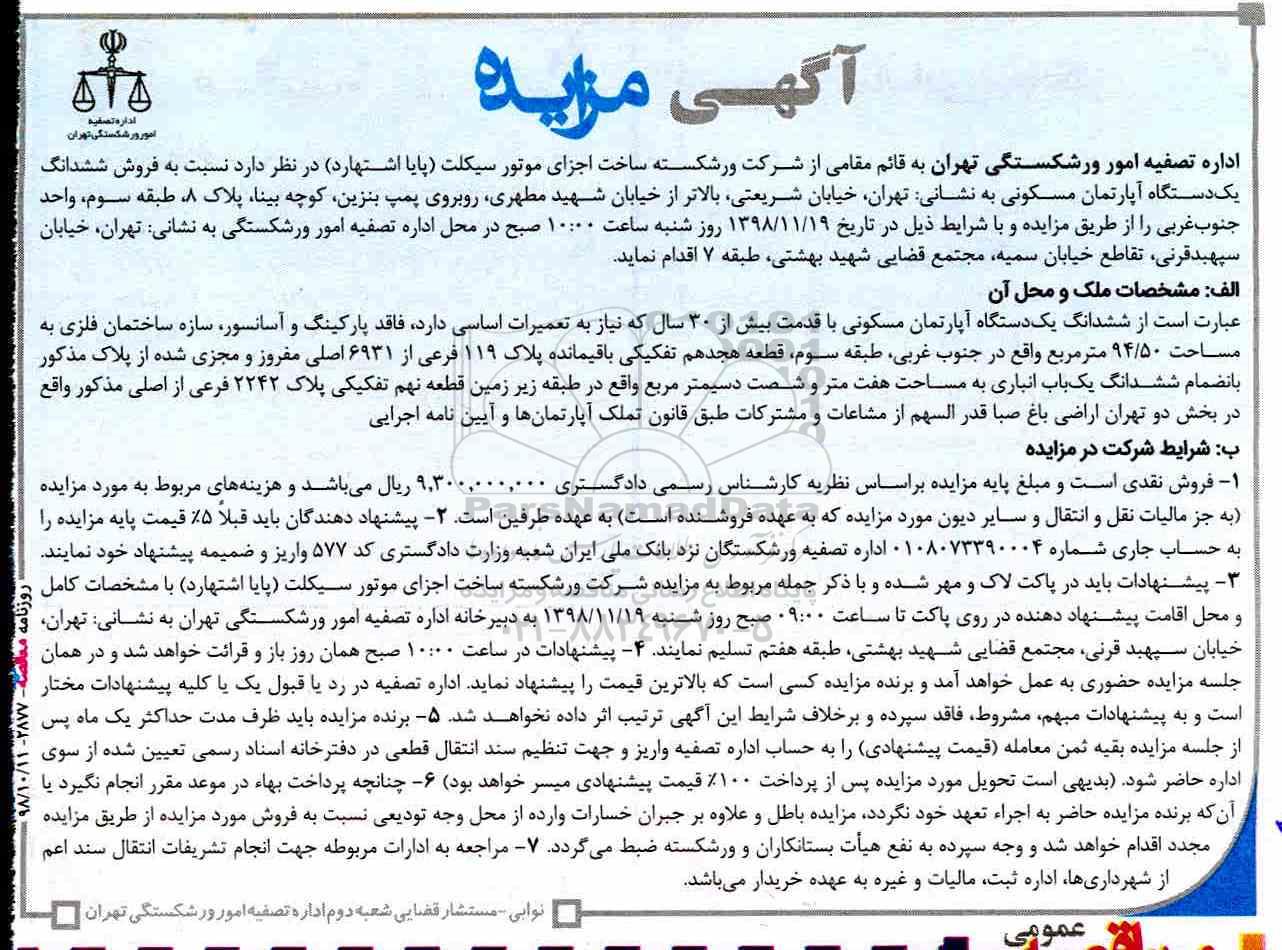 آگهی مزایده
اداره تصفیه
امور ورشکستگی تهران
اداره تصفیه امور ورشکستگی تهران به قائم مقامی از شرکت ورشکسته ساخت اجزای موتور سیکلت (پایا اشتهارد) در نظر دارد نسبت به فروش ششدانگ
یک‌دستگاه آپارتمان مسکونی به نشانی: تهران، خیابان شریعتی، بالاتر از خیابان شهید مطهری، روبروی پمپ بنزین، کوچه بینا، پلاک ۸، طبقه سوم، واحد
جنوب‌غربی را از طریق مزایده و با شرایط ذیل در تاریخ ۱۳۹۸/۱۱/۱۹ روز شنبه ساعت ۱۰:۰۰ صبح در محل اداره تصفیه امور ورشکستگی به نشانی: تهران، خیابان
سپهبدقرنی، تقاطع خیابان سمیه، مجتمع قضایی شهید بهشتی، طبقه ۷ اقدام نماید.
الف: مشخصات ملک و محل آن
عبارت است از ششدانگ یک‌دستگاه آپارتمان مسکونی با قدمت بیش از ۳۰ سال که نیاز به تعمیرات اساسی دارد، فاقد پارکینگ و آسانسور، سازه ساختمان فلزی به
مساحت ۹۴/۵۰ مترمربع واقع در جنوب غربی، طبقه سوم، قطعه هجدهم تفکیکی باقیمانده پلاک ۱۱۹ فرعی از ۶۹۳۱ اصلی مفروز و مجزی شده از پلاک مذکور
بانضمام ششدانگ یک‌باب انباری به مساحت هفت متر و شصت دسیمتر مربع واقع در طبقه زیر زمین قطعه نهم تفکیکی پلاک ۲۲۴۲ فرعی از اصلی مذکور واقع
در بخش دو تهران اراضی باغ صبا قدر السهم از مشاعات و مشترکات طبق قانون تملک آپارتمان‌ها و آیین نامه اجرایی
ب: شرایط شرکت در مزایده
۱- فروش نقدی است و مبلغ پایه مزایده براساس نظریه کارشناس رسمی دادگستری ۹,۳۰۰,۰۰۰,۰۰۰ ریال می‌باشد و هزینه‌های مربوط به مورد مزایده
(به جز مالیات نقل و انتقال و سایر دیون مورد مزایده که به عهده فروشنده است) به عهده طرفین است. ۲- پیشنهاد دهندگان باید قبلاً ۵٪ قیمت پایه مزایده را
به حساب جاری شماره ۰۱۰۸۰۷۳۳۹۰۰۰۴ اداره تصفیه ورشکستگان نزد بانک ملی ایران شعبه وزارت دادگستری کد ۵۷۷ واریز و ضمیمه پیشنهاد خود نمایند.
۳- پیشنهادات باید در پاکت لاک و مهر شده و با ذکر جمله مربوط به مزایده شرکت ورشکسته ساخت اجزای موتور سیکلت (پایا اشتهارد) با مشخصات کامل
و محل اقامت پیشنهاد دهنده در روی پاکت تا ساعت ۰۹:۰۰ صبح روز شنبه ۱۳۹۸/۱۱/۱۹ به دبیرخانه اداره تصفیه امور ورشکستگی تهران به نشانی: تهران،
خیابان سپهبد قرنی، مجتمع قضایی شهید بهشتی، طبقه هفتم تسلیم نمایند. ۴- پیشنهادات در ساعت ۱۰:۰۰ صبح همان روز باز و قرائت خواهد شد و در همان
جلسه مزایده حضوری به عمل خواهد آمد و برنده مزایده کسی است که بالاترین قیمت را پیشنهاد نماید. اداره تصفیه در رد یا قبول یک یا کلیه پیشنهادات مختار
است و به پیشنهادات مبهم، مشروط، فاقد سپرده و برخلاف شرایط این آگهی ترتیب اثر داده نخواهد شد. ۵- برنده مزایده باید ظرف مدت حداکثر یک ماه پس
از جلسه مزایده بقیه ثمن معامله (قیمت پیشنهادی) را به حساب اداره تصفیه واریز و جهت تنظیم سند انتقال قطعی در دفترخانه اسناد رسمی تعیین شده از سوی
اداره حاضر شود. (بدیهی است تحویل مورد مزایده پس از پرداخت ۱۰۰٪ قیمت پیشنهادی میسر خواهد بود) ۶- چنانچه پرداخت بهاء در موعد مقرر انجام نگیرد یا
آن‌که برنده مزایده حاضر به اجراء تعهد خود نگردد، مزایده باطل و علاوه بر جبران خسارات وارده از محل وجه تودیعی نسبت به فروش مورد مزایده از طریق مزایده
مجدد اقدام خواهد شد و وجه سپرده به نفع هیأت بستانکاران و ورشکسته ضبط می‌گردد. ۷- مراجعه به ادارات مربوطه جهت انجام تشریفات انتقال سند اعم
از شهرداری‌ها، اداره ثبت، مالیات و غیره به عهده خریدار می‌باشد.
نوابی - مستشار قضایی شعبه دوم اداره تصفیه امور ورشکستگی تهران
روزنامه مناقصه - ۲۸۷۷ - ۹۸/۱۰/۱۱
ParsNamadData
پایگاه اطلاع رسانی مناقصه و مزایده
۰۲۱-۸۸۳۴۹۶۷۰-۵
عمومی